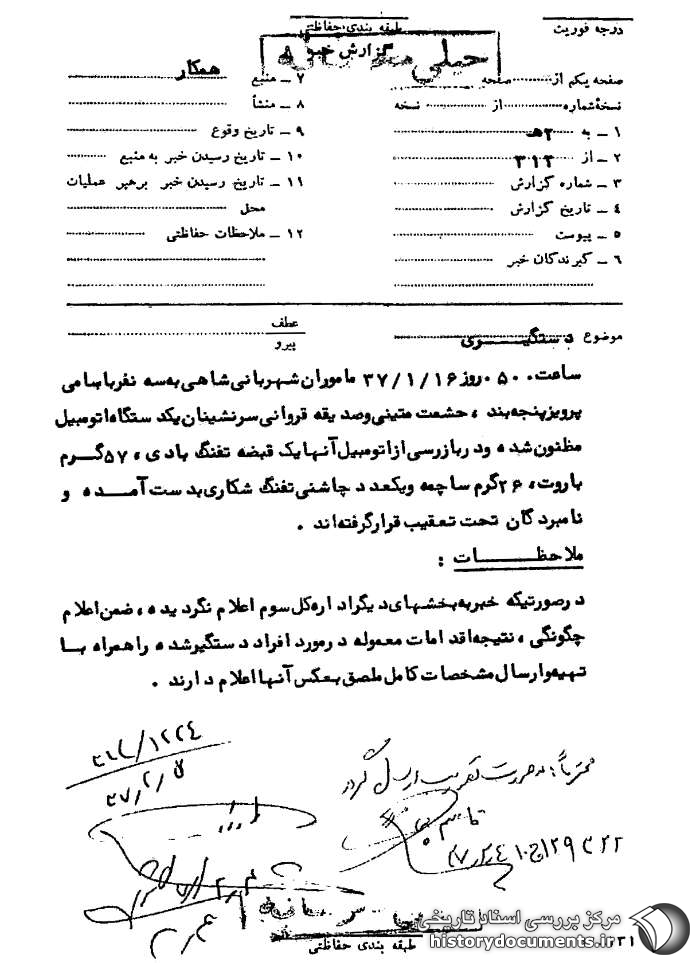 درجه فوریت
طبقه بندی حفاظتی
گزارش خبر
خیلی محرمانه
صفحه یکم از صفحه
نسخهٔ شماره از نسخه
۱ – به ۲هـ
۲ – از ۳۱۲
۳ – شماره گزارش
۴ – تاریخ گزارش
۵ – پیوست
۶ – گیرندگان خبر
۷ – منبع همکار
۸ – منشأ
۹ – تاریخ وقوع
۱۰ – تاریخ رسیدن خبر به منبع
۱۱ – تاریخ رسیدن خبر برهبر عملیات
محل
۱۲ – ملاحظات حفاظتی
موضوع دستگیـــری
عطف
پیرو
ساعت ۰۵۰ روز ۳۷/۱/۱۶ ماموران شهربانی شاهی به سه نفر باسامی
پرویز پنجه بند، حشمت متینی و صدیقه قروانی سرنشینان یکدستگاه اتومبیل
مظنون شده و در بازرسی از اتومبیل آنها یک قبضه تفنگ بادی، ۵۷ گرم
باروت، ۲۶ گرم ساچمه و یکعدد چاشنی تفنگ شکاری بدست آمـده و
نامبردگان تحت تعقیب قرار گرفته اند .
ملاحظـــات :
در صورتیکه خبر به بخشهای دیگر اداره کل سوم اعلام نگردیده، ضمن اعلام
چگونگی، نتیجه اقدامات معموله در مورد افراد دستگیر شده را همراه بـا
تهیه و ارسال مشخصات کامل ملصق بعکس آنها اعلام دارند .
محترماً: بصورت تقریب ارسال گردد
۳۱۲/۱۲۲۴
۳۷/۲/۵
۳۷/۲/۴
طبقه بندی حفاظتی
مرکز بررسی اسناد تاریخی
historydocuments.ir